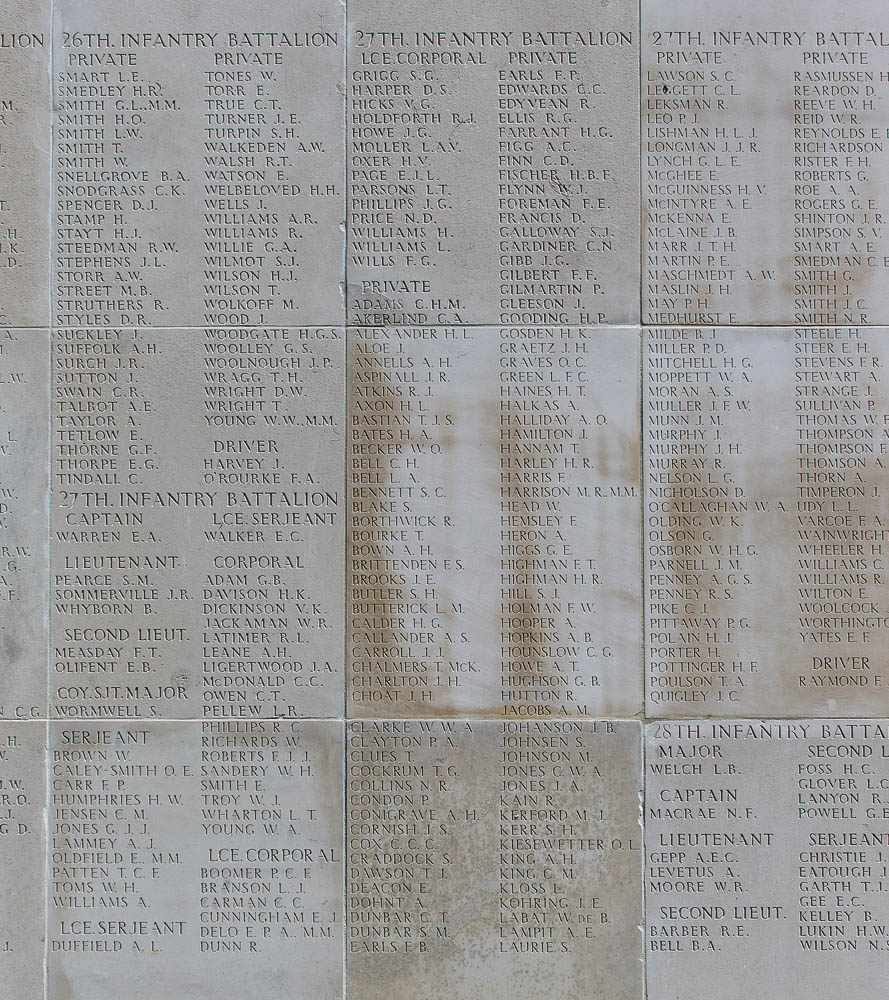 26TH. INFANTRY BATTALION
PRIVATE
SMART L.E.
SMEDLEY H.R.
SMITH G.L., M.M.
SMITH H.O.
SMITH L.W.
SMITH T.
SMITH W.
SNELLGROVE B.A.
SNODGRASS C.K.
SPENCER D.J.
STAMP H.
STAYT H.J.
STEEDMAN R.W.
STEPHENS J.L.
STORR A.W.
STREET M.B.
STRUTHERS R.
STYLES D.R.
SUCKLEY J.
SUFFOLK A.H.
SURCH J.R.
SUTTON J.
SWAIN C.R.
TALBOT A.E.
TAYLOR A.
TETLOW E.
THORNE G.F.
THORPE E.G.
TINDALL C.
PRIVATE
TONES W.
TORR E.
TRUE C.T.
TURNER J.E.
TURPIN S.H.
WALKEDEN A.W.
WALSH R.T.
WATSON E.
WELBELOVED H.H.
WELLS J.
WILLIAMS A.R.
WILLIAMS R.
WILLIE G.A.
WILMOT S.J.
WILSON H.J.
WILSON T.
WOLKOFF M.
WOOD J.
WOODGATE H.G.S.
WOOLLEY G.S.
WOOLNOUGH J.P.
WRAGG T.H.
WRIGHT D.W.
WRIGHT T.
YOUNG W.W., M.M.
DRIVER
HARVEY J.
O'ROURKE F.A.
27TH. INFANTRY BATTALION
CAPTAIN
WARREN E.A.
LIEUTENANT
PEARCE S.M.
SOMMERVILLE J.R.
WHYBORN B.
SECOND LIEUT.
MEASDAY F.T.
OLIFENT E.B.
COY. SJT. MAJOR
WORMWELL S.
SERJEANT
BROWN W.
CALEY-SMITH O.E.
CARR F.P.
HUMPHRIES H.W.
JENSEN C.M.
JONES G.J.J.
LAMMEY A.J.
OLDFIELD E., M.M.
PATTEN T.C.F.
TOMS W.H.
WILLIAMS A.
LCE. SERJEANT
DUFFIELD A.L.
LCE. SERJEANT
WALKER E.C.
CORPORAL
ADAM G.B.
DAVISON H.K.
DICKINSON V.K.
JACKAMAN W.R.
LATIMER R.L.
LEANE A.H.
LIGERTWOOD J.A.
McDONALD C.C.
OWEN C.T.
PELLEW L.R.
PHILLIPS R.C.
RICHARDS W.
ROBERTS E.J.J.
SANDERY W.H.
SMITH E.
TROY W.J.
WHARTON L.T.
YOUNG W.A.
LCE. CORPORAL
BOOMER P.C.F.
BRANSON L.J.
CARMAN C.C.
CUNNINGHAM E.J.
DELO E.P.A., M.M.
DUNN R.
27TH. INFANTRY BATTALION
LCE. CORPORAL
GRIGG S.G.
HARPER D.S.
HICKS V.G.
HOLDFORTH R.J.
HOWE J.G.
MOLLER L.A.V.
OXER H.V.
PAGE E.J.L.
PARSONS L.T.
PHILLIPS J.G.
PRICE N.D.
WILLIAMS H.
WILLIAMS L.
WILLS F.G.
PRIVATE
ADAMS C.H.M.
AKERLIND C.A.
ALEXANDER H.L.
ALOE J.
ANNELLS A.H.
ASPINALL J.R.
ATKINS R.J.
AXON H.L.
BASTIAN T.J.S.
BATES H.A.
BECKER W.O.
BELL C.H.
BELL L.A.
BENNETT S.C.
BLAKE S.
BORTHWICK R.
BOURKE T.
BOWN A.H.
BRITTENDEN F.S.
BROOKS J.E.
BUTLER S.H.
BUTTERICK L.M.
CALDER H.G.
CALLANDER A.S.
CARROLL J.J.
CHALMERS T. McK.
CHARLTON J.H.
CHOAT J.H.
CLARKE W.W.A.
CLAYTON P.A.
CLUES T.
COCKRUM T.G.
COLLINS N.R.
CONDON P.
CONIGRAVE A.H.
CORNISH J.S.
COX C.C.C.
CRADDOCK S.
DAWSON T.J.
DEACON E.
DOHNT A.
DUNBAR C.T.
DUNBAR S.M.
EARLS F.B.
PRIVATE
EARLS F.P.
EDWARDS C.C.
EDYVEAN R.
ELLIS R.G.
FARRANT H.G.
FIGG A.C.
FINN C.D.
FISCHER H.B.F.
FLYNN W.J.
FOREMAN F.E.
FRANCIS D.
GALLOWAY S.J.
GARDINER C.N.
GIBB J.G.
GILBERT F.F.
GILMARTIN P.
GLEESON J.
GOODING H.P.
GOSDEN H.K.
GRAETZ J.H.
GRAVES O.C.
GREEN L.F.C.
HAINES H.T.
HALKAS A.
HALLIDAY A.O.
HAMILTON J.
HANNAM T.
HARLEY H.R.
HARRIS F.
HARRISON M.R., M.M.
HEAD W.
HEMSLEY F.
HERON A.
HIGGS G.E.
HIGHMAN F.T.
HIGHMAN H.R.
HILL S.J.
HOLMAN F.W.
HOOPER A.
HOPKINS A.B.
HOUNSLOW C.G.
HOWE A.T.
HUGHSON G.B.
HUTTON R.
JACOBS A.M.
JOHANSON J.B.
JOHNSEN S.
JOHNSON M.
JONES C.W.A.
JONES J.A.
KAIN R.
KERFORD M.J.
KERR S.H.
KIESEWETTER O.L.
KING A.H.
KING C.M.
KLOSS L.
KOHRING J.E.
LABAT W. DE B.
LAMPIT A.E.
LAURIE S.
27TH. INFANTRY BATTAL
PRIVATE
LAWSON S.C.
LEGGETT C.L.
LEKSMAN R.
LEO P.J.
LISHMAN H.L.J.
LONGMAN J.J.R.
LYNCH G.L.E.
McGHEE E.
McGUINNESS H.V.
McINTYRE A.E.
McKENNA E.
McLAINE J.B.
MARR J.T.H.
MARTIN P.E.
MASCHMEDT A.W.
MASLIN J.H.
MAY P.H.
MEDHURST E.
MILDE B.J.
MILLER P.D.
MITCHELL H.G.
MOPPETT W.A.
MORAN A.S.
MULLER J.F.W.
MUNN J.M.
MURPHY J.
MURPHY J.H.
MURRAY R.
NELSON L.G.
NICHOLSON D.
O'CALLAGHAN W.A.
OLDING W.K.
OLSON G.
OSBORN W.H.G.
PARNELL J.M.
PENNEY A.G.S.
PENNEY R.S.
PIKE C.J.
PITTAWAY P.G.
POLAIN H.J.
PORTER H.
POTTINGER H.F.
POULSON T.A.
QUIGLEY J.C.
PRIVATE
RASMUSSEN H
REARDON D.
REEVE W.H.
REID W.R.
REYNOLDS E.
RICHARDSON
RISTER F.H.
ROBERTS G.
ROE A.A.
ROGERS G.E.
SHINTON J.R.
SIMPSON S.V.
SMART A.E.
SMEDMAN C.E
SMITH G.
SMITH J.
SMITH J.C.
SMITH N.R.
STEELE H.
STEER E.H.
STEVENS F.R.
STEWART A.
STRANGE J.
SULLIVAN P.
THOMAS W.F
THOMPSON A
THOMPSON F
THOMSON A.
THORN A.
TIMPERON J.
UDY L.L.
VARCOE F.A.
WAINWRIGHT
WHEELER H.
WILLIAMS C.
WILLIAMS R.
WILTON E.
WOOLCOCK
WORTHINGTO
YATES E.F.
DRIVER
RAYMOND F.
28TH. INFANTRY BATTA
MAJOR
WELCH L.B.
CAPTAIN
MACRAE N.F.
LIEUTENANT
GEPP A.E.C.
LEVETUS A.
MOORE W.R.
SECOND LIEUT.
BARBER R.E.
BELL B.A.
SECOND L
FOSS H.C.
GLOVER L.C
LANYON R.
POWELL G.E
SERJEANT
CHRISTIE J.
EATOUGH J.
GARTH T.J.
GEE E.C.
KELLEY B.
LUKIN H.W.
WILSON N.S